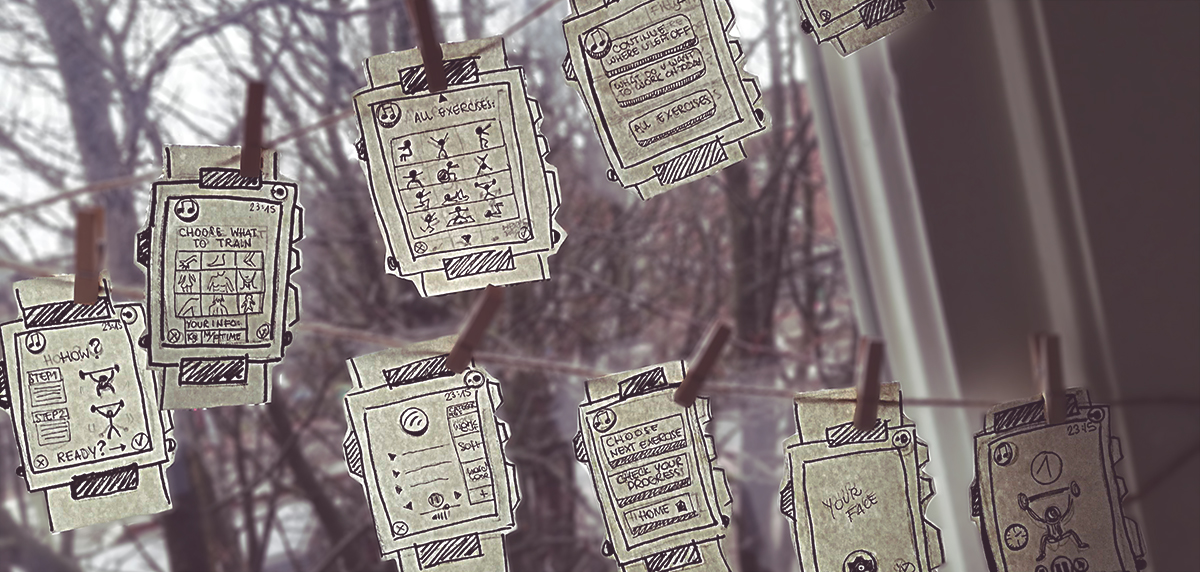 CONTINUE
WHERE U LEFT OFF
WHAT DO U WANT
TO WORK ON TODAY
ALL EXERCISES
ALL EXERCISES:
23:15
CHOOSE WHAT
TO TRAIN
YOUR INFO:
KG
TIME
23:15
HOW?
STEP 1
STEP 2
READY? →
23:15
SOFT
+
CHOOSE
NEXT EXERCISE
CHECK YOUR
PROGRESS
HOME
YOUR
FACE
23:15
1